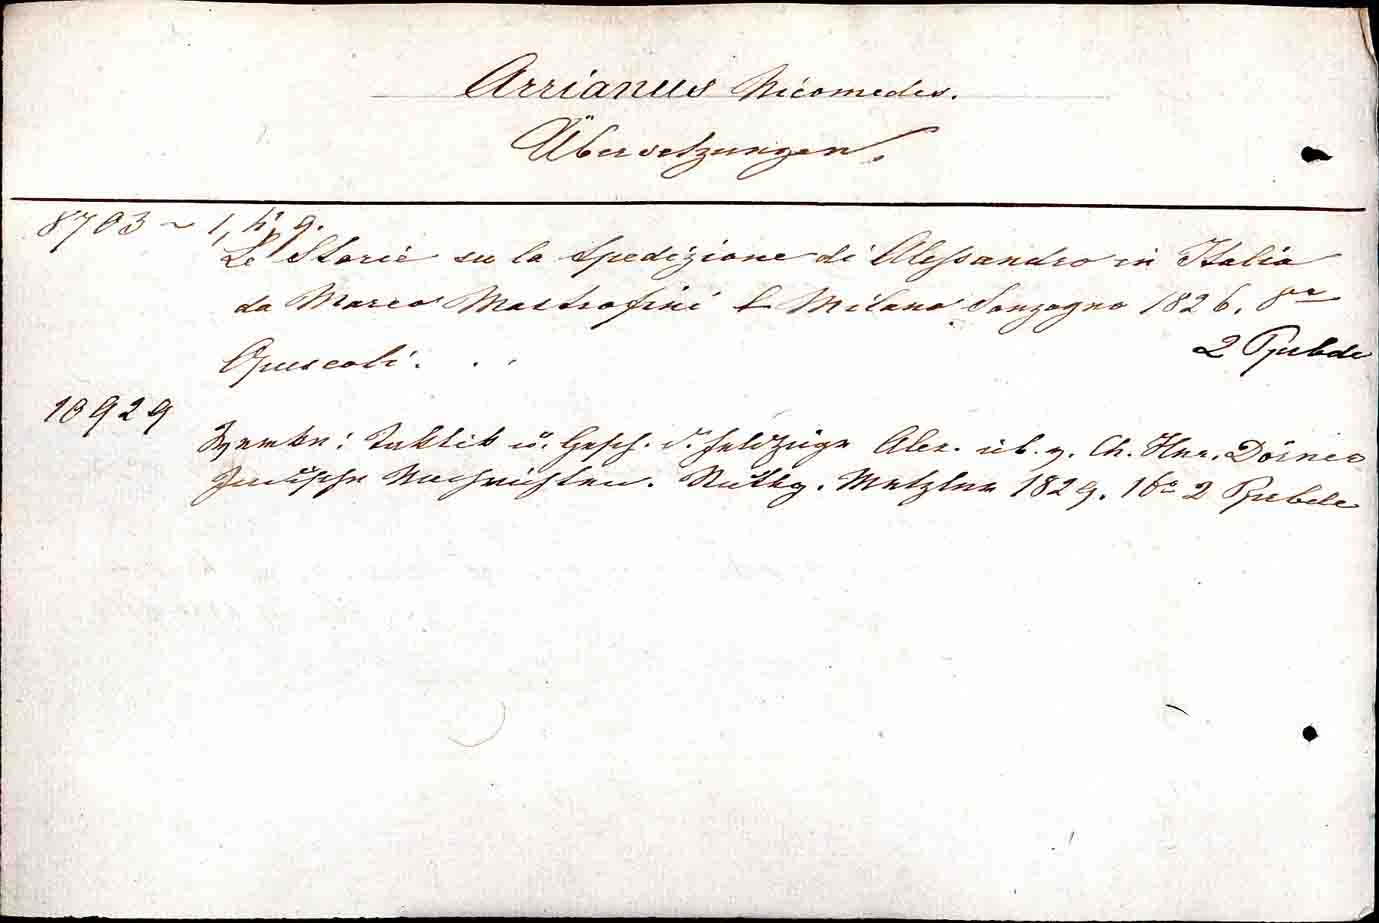 Arrianus Nicomedes.
Übersetzungen.
8703 ~ 1, h, 9.
Le Storie su la Spedizione di Alessandro in Italia
da Marco Mastrofini & Milano Sonzogno 1826. 8vo
2 Ppbde
Opuscoli. . .
10929
Werke: Taktik u. Gesch. d. Feldzüge Alex. üb. v. Ch. Hnr. Dörner
Indische Nachrichten. Stuttg. Metzler 1829. 16° 2 Ppbde